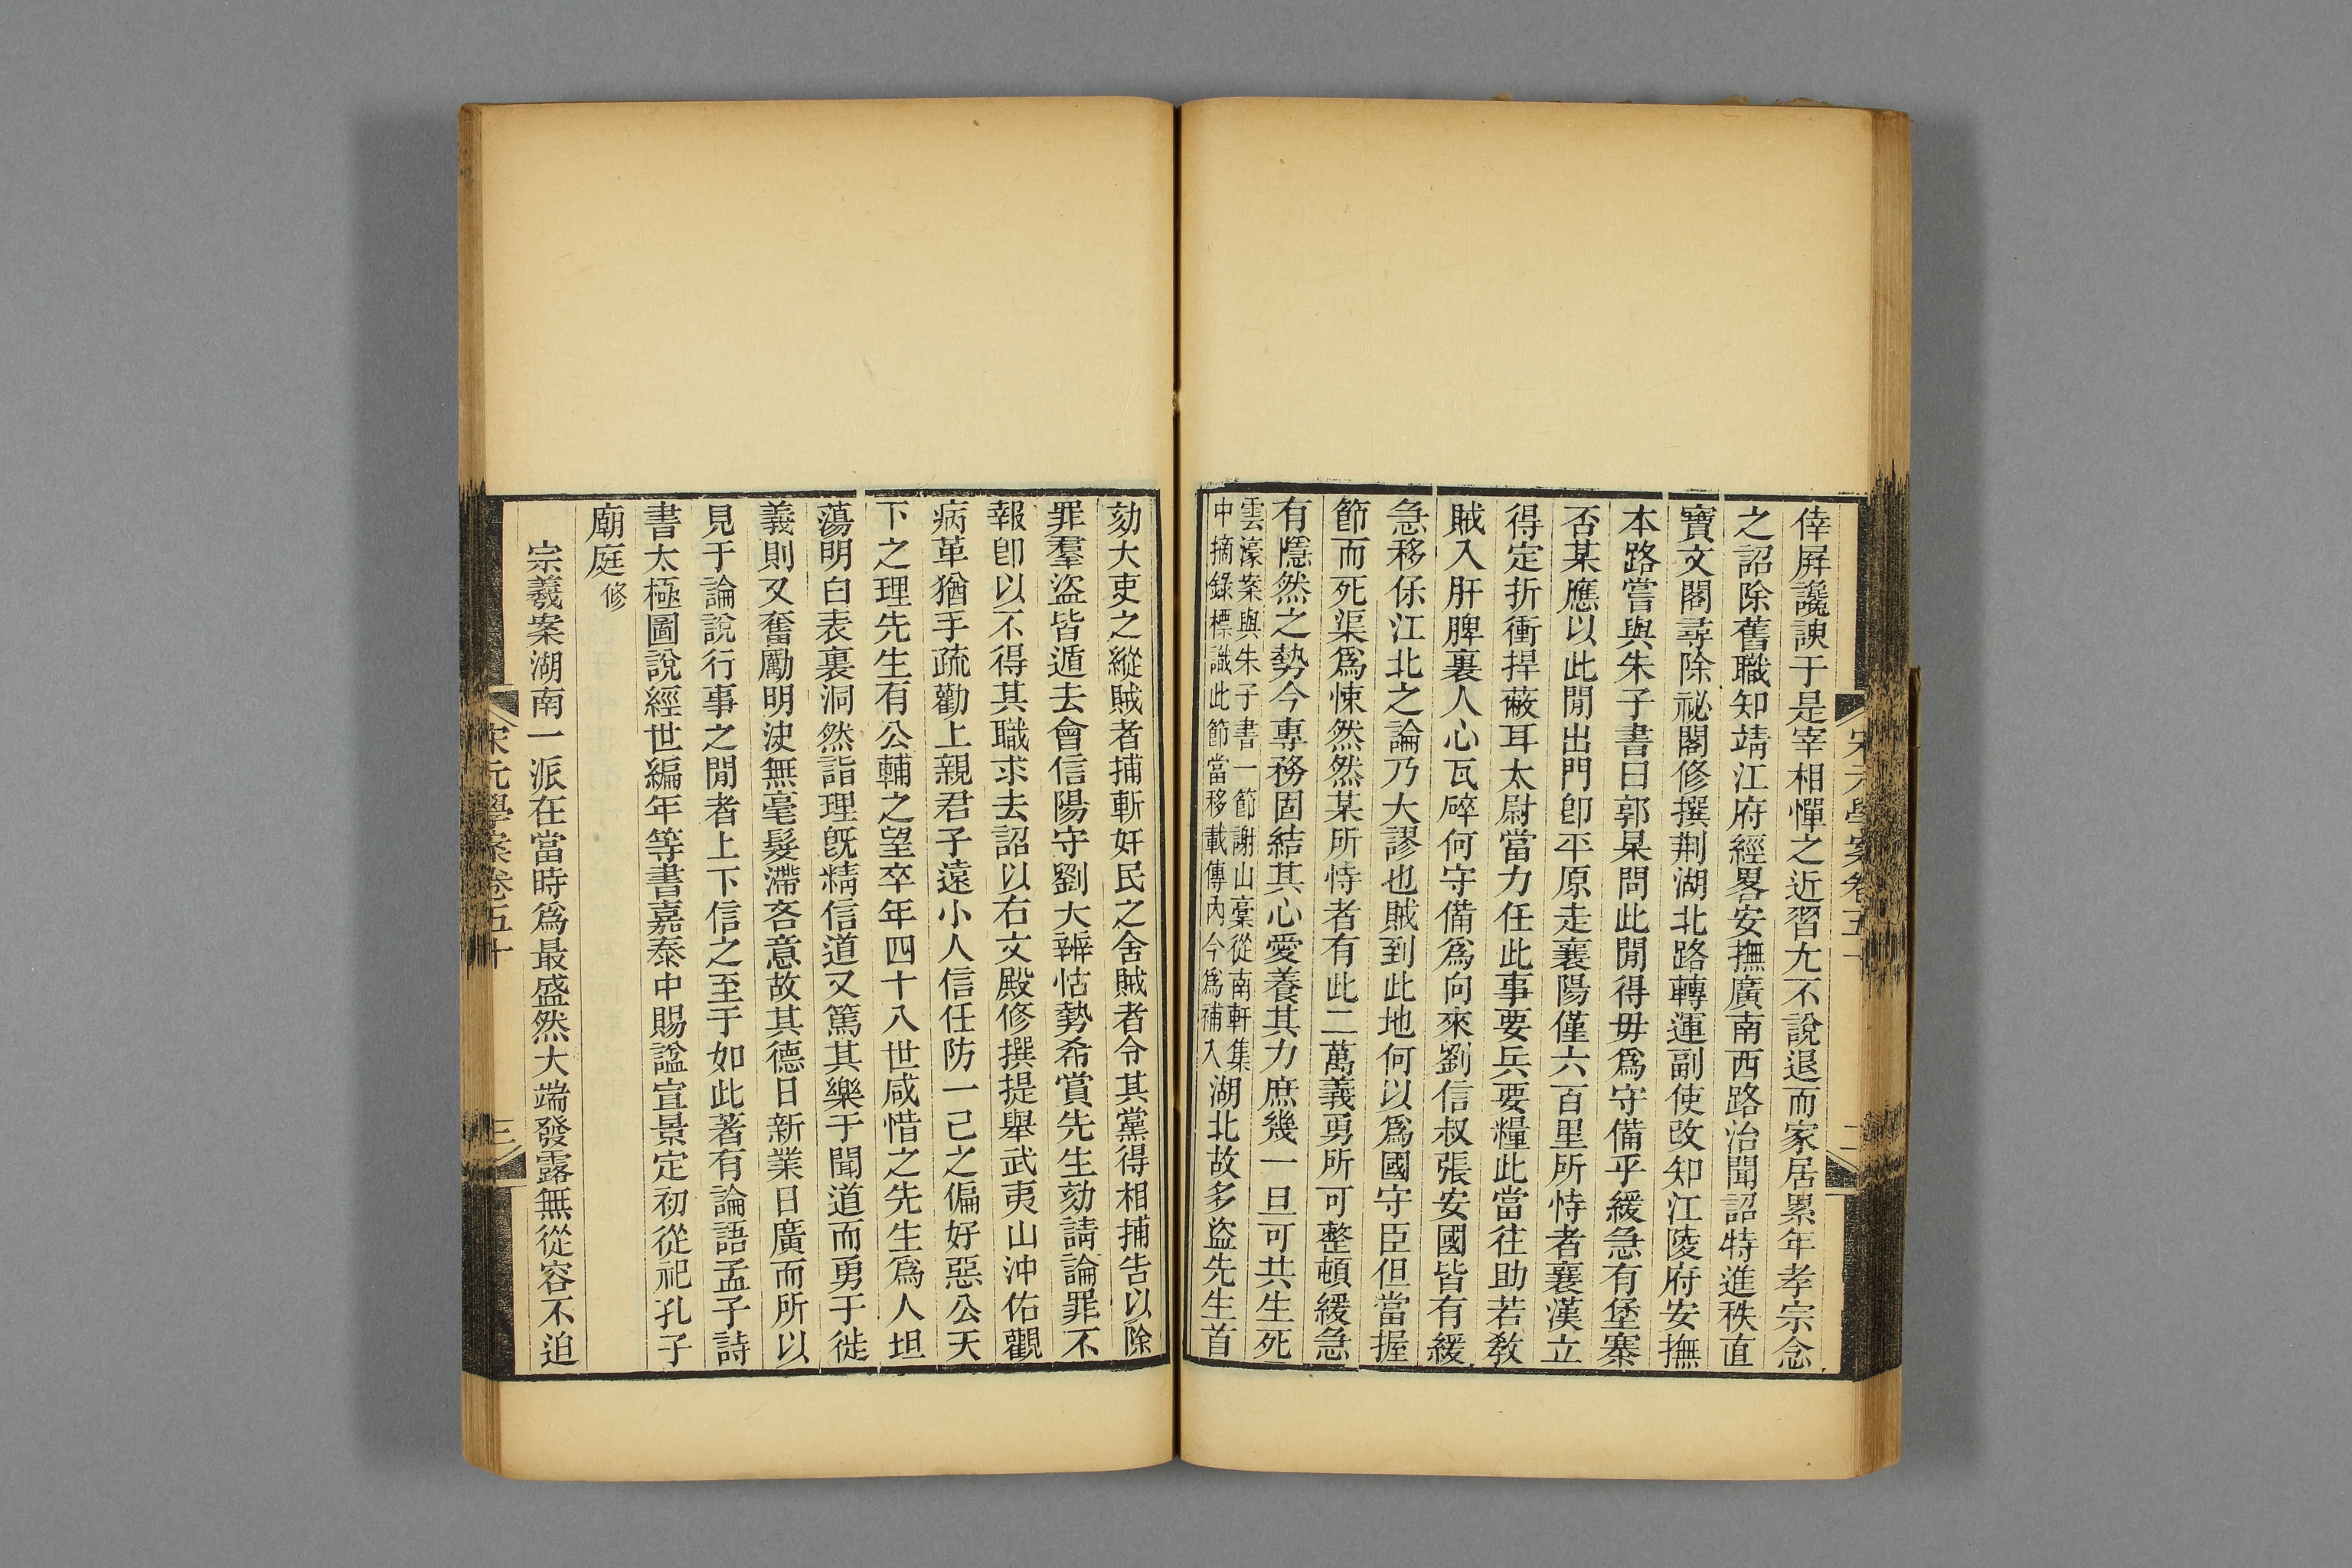 倖屛讒諛于是宰相憚之近習尤不說退而家居累年孝宗念
之詔除舊職知靖江府經畧安撫廣南西路治聞詔特進秩直
寶文閣尋除祕閣修撰荆湖北路轉運副使改知江陵府安撫
本路嘗與朱子書曰郭杲問此閒得毋爲守備乎緩急有堡寨
否某應以此閒出門卽平原走襄陽僅六百里所恃者襄漢立
得定折衝捍蔽耳太尉當力任此事要兵要糧此當往助若敎
賊入肝脾裏人心瓦碎何守備爲向來劉信叔張安國皆有緩
急移保江北之論乃大謬也賊到此地何以爲國守臣但當握
節而死渠爲悚然然某所恃者有此二萬義勇所可整頓緩急
有隱然之勢今專務固結其心愛養其力庶幾一旦可共生死
雲濠案與朱子書一節謝山稾從南軒集
中摘錄標識此節當移載傳內今爲補入
湖北故多盜先生首
劾大吏之縱賊者捕斬奸民之舍賊者令其黨得相捕告以除
罪羣盜皆遁去會信陽守劉大辨怙勢希賞先生劾請論罪不
報卽以不得其職求去詔以右文殿修撰提舉武夷山沖佑觀
病革猶手疏勸上親君子遠小人信任防一己之偏好惡公天
下之理先生有公輔之望卒年四十八世咸惜之先生爲人坦
蕩明白表裏洞然詣理旣精信道又篤其樂于聞道而勇于徙
義則又奮勵明決無毫髮滯吝意故其德日新業日廣而所以
見于論說行事之閒者上下信之至于如此著有論語孟子詩
書太極圖說經世編年等書嘉泰中賜諡宣景定初從祀孔子
廟庭修
宗羲案湖南一派在當時爲最盛然大端發露無從容不迫
宋元學案卷五十
三